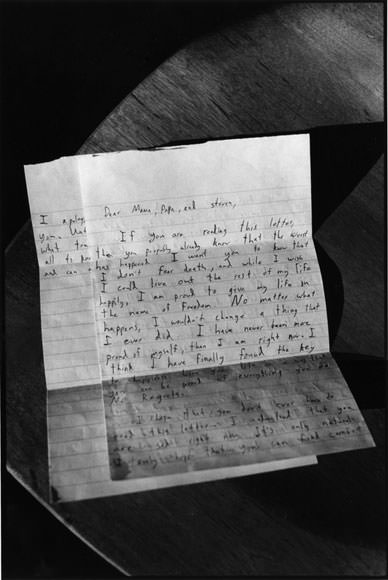 I apolog
you that
what
all to
and can
Dear Mama, Papa, and Steven,
If you are reading this letter,
you probably already know that the worst
has happened. I want you to know that
I don't fear death, and while I wish
I could live out the rest of my life
happily, I am proud to give my life in
the name of Freedom. No matter what
happens, I wouldn't change a thing that
I ever did. I have never been more
proud of myself, then I am right now. I
think I have finally found the key
to happiness
be proud of everything you do
No Regrets.
I hope that you don't ever have to
read this letter. I understand that you
are right now, it's only natural
I truly hope that you can find comfort